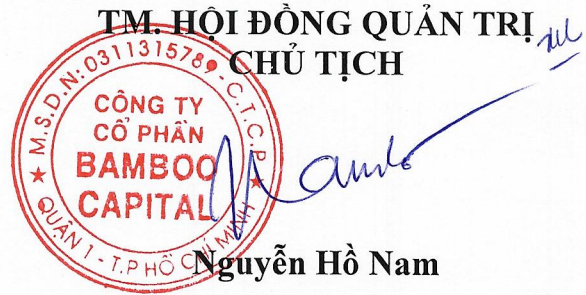 TM. HỘI ĐỒNG QUẢN TRỊ
CHỦ TỊCH
M.S.D.N: 0311315789 - C.T.C.P
CÔNG TY
CỔ PHẦN
BAMBOO
CAPITAL
QUẬN 1 - T.P HỒ CHÍ MINH
Nguyễn Hồ Nam